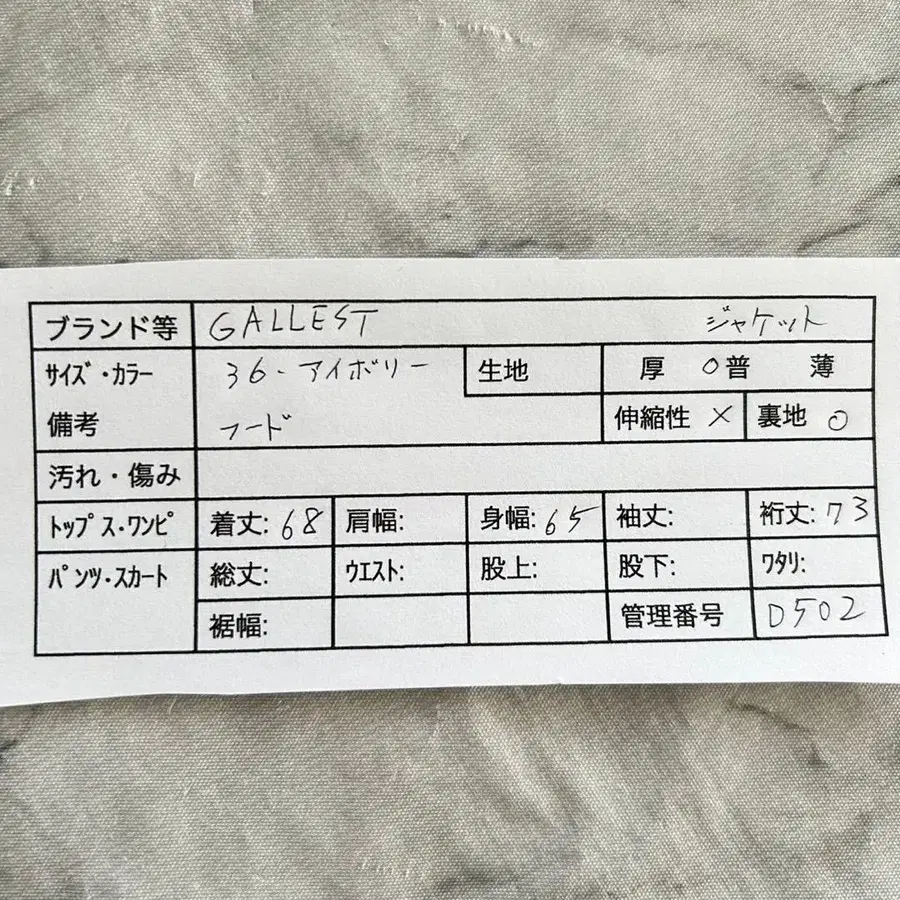 ブランド等 GALLEST ジャケット
サイズ・カラー 36・アイボリー 生地 厚 ○普 薄
備考 フード 伸縮性 × 裏地 ○
汚れ・傷み
トップス・ワンピ 着丈: 68 肩幅: 身幅: 65 袖丈: 裄丈: 73
パンツ・スカート 総丈: ウエスト: 股上: 股下: ワタリ:
裾幅: 管理番号 D502